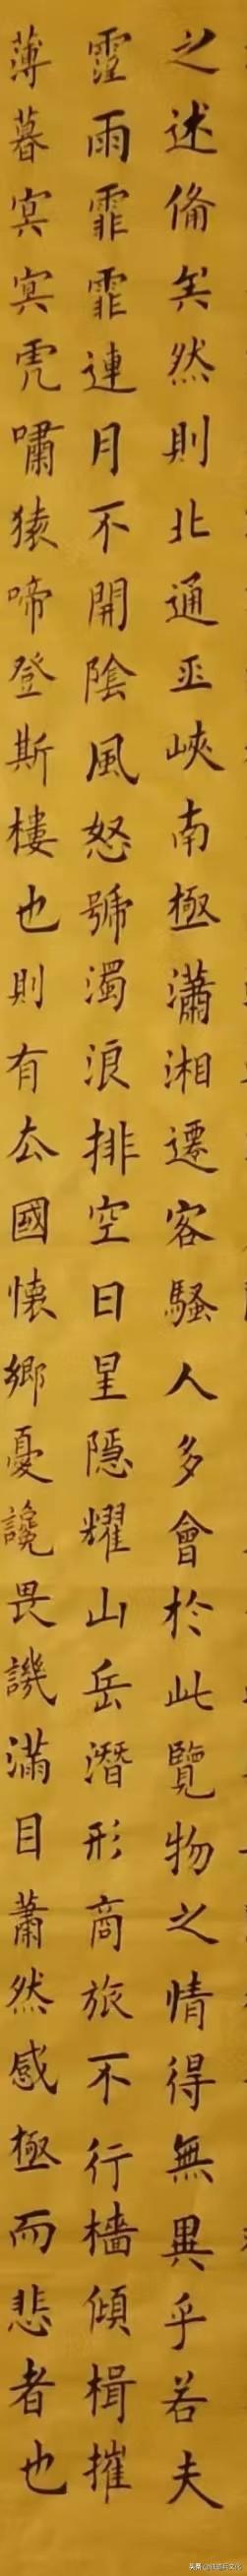 之述備矣然則北通巫峽南極瀟湘遷客騷人多會於此覽物之情得無異乎若夫
霪雨霏霏連月不開陰風怒號濁浪排空日星隱耀山岳潛形商旅不行檣傾楫摧
薄暮冥冥虎嘯猿啼登斯樓也則有去國懷鄉憂讒畏譏滿目蕭然感極而悲者也